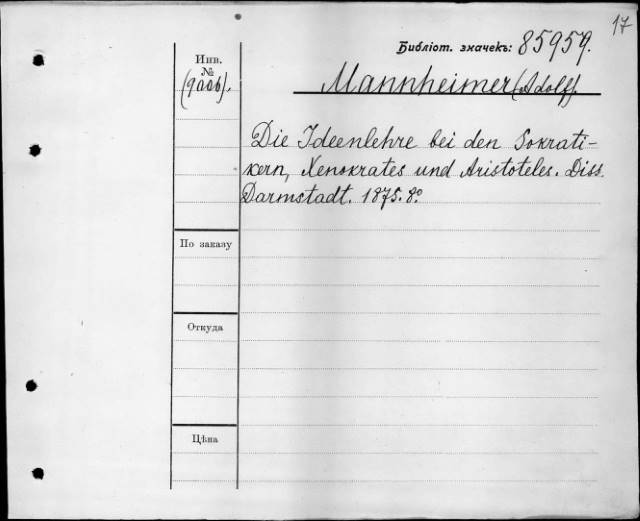 17
Библіот. значекъ: 85959.
Инв.
№
(9006).
Mannheimer (Adolf).
Die Ideenlehre bei den Sokrati-
kern, Xenokrates und Aristoteles. Diss.
Darmstadt. 1875. 8º
По заказу
Откуда
Цѣна